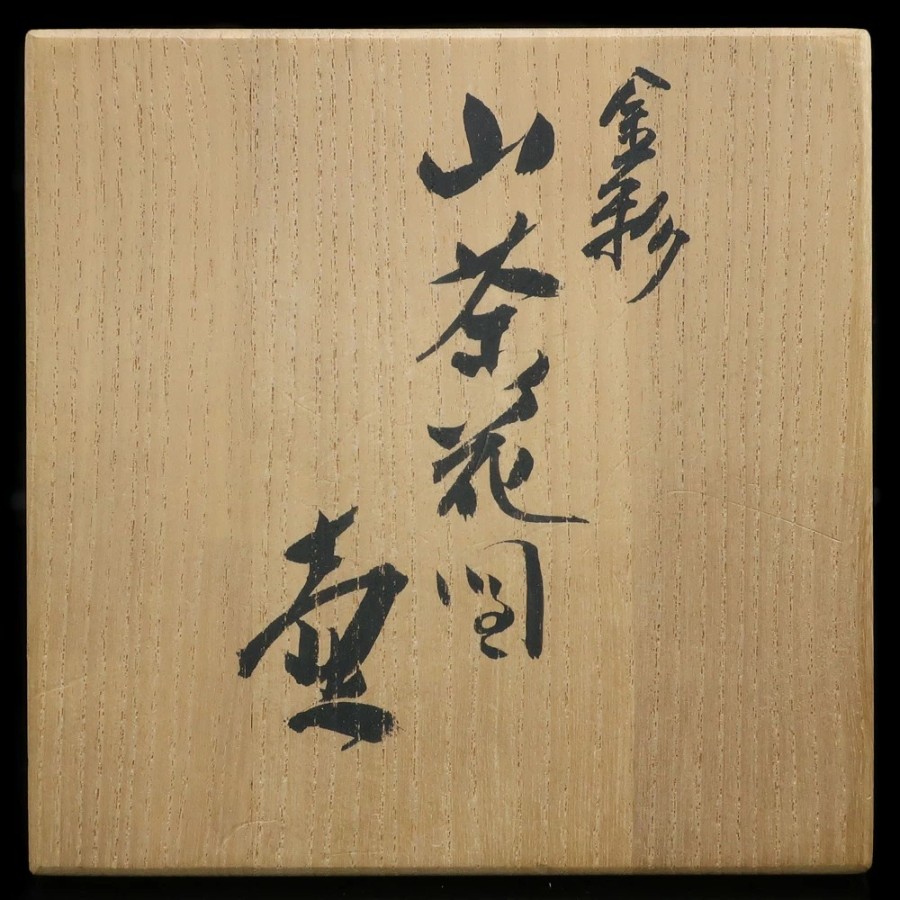 金彩
山茶花図
壷